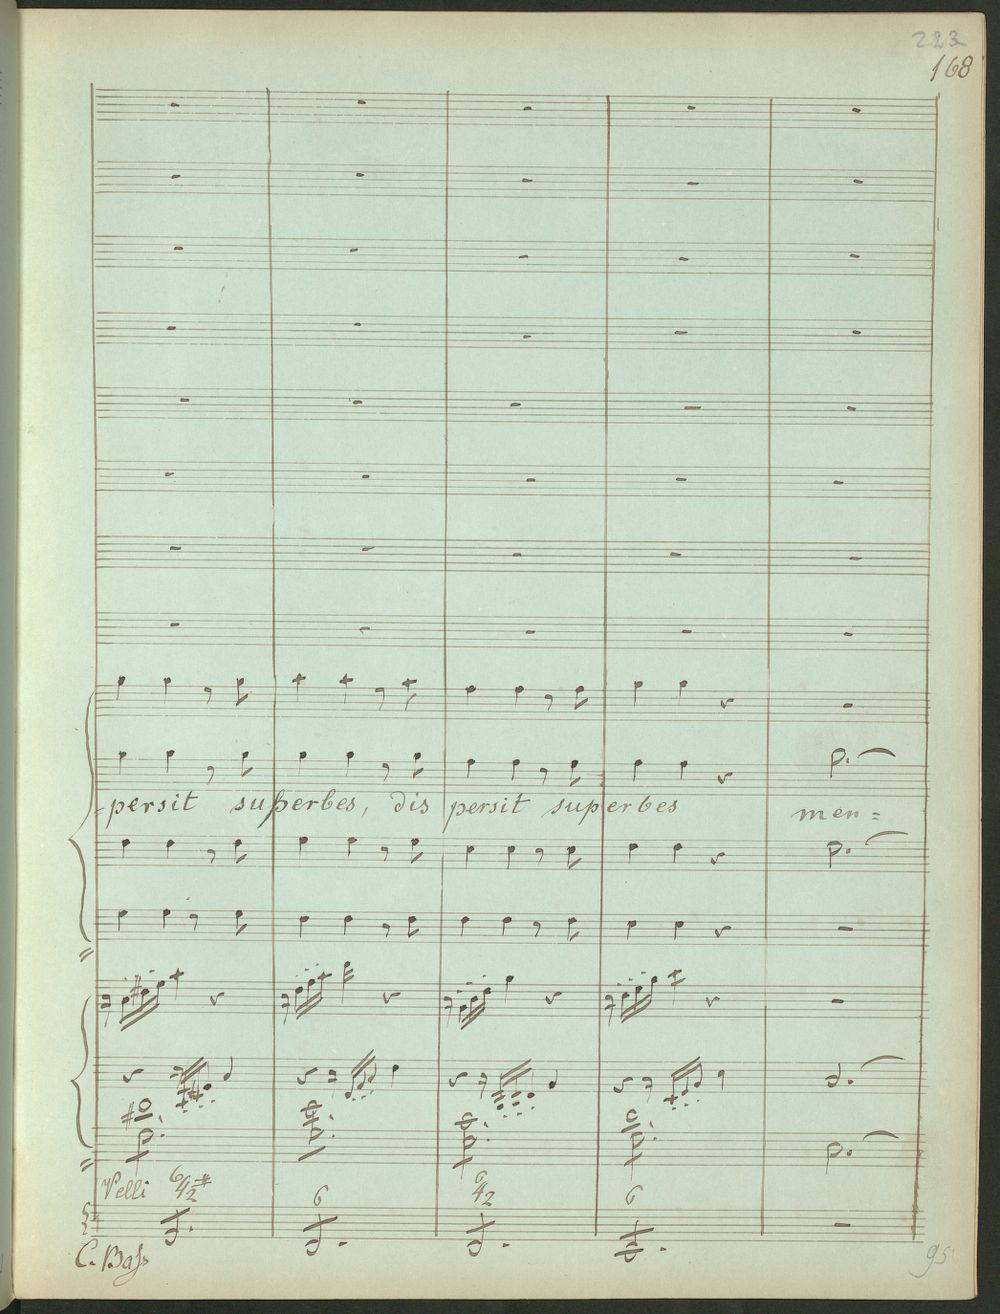 223
168
=persit superbes, dis persit superbes men=
Velli 6/42# 6 6/42 6
C. Bass
95